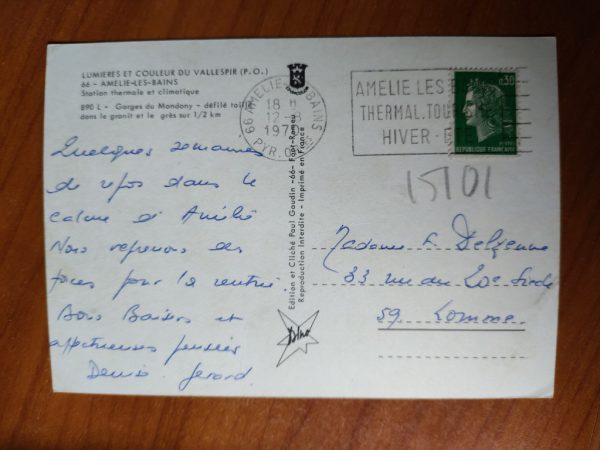 LUMIERES ET COULEUR DU VALLESPIR (P.O.)
66 - AMELIE-LES-BAINS
Station thermale et climatique
890 L - Gorges du Mondony - défilé taillé
dans le granit et le grès sur 1/2 km
Quelques semaines
de repos dans le
calme d'Amélie
Nous reprenons des
forces pour la rentrée.
Bons Baisers et
affectueuses pensées
Denis Gerard
Edition et Cliché Paul Gaudin -66- Font-Romeu
Reproduction Interdite - Imprimé en France
Dino
66 AMELIE BAINS
18 H
12 - 8
PYR. OR
AMELIE LES
THERMAL. TOU
HIVER - E
0,30
REPUBLIQUE FRANÇAISE
15101
Madame Delzenne
33 rue du
59 Lomme